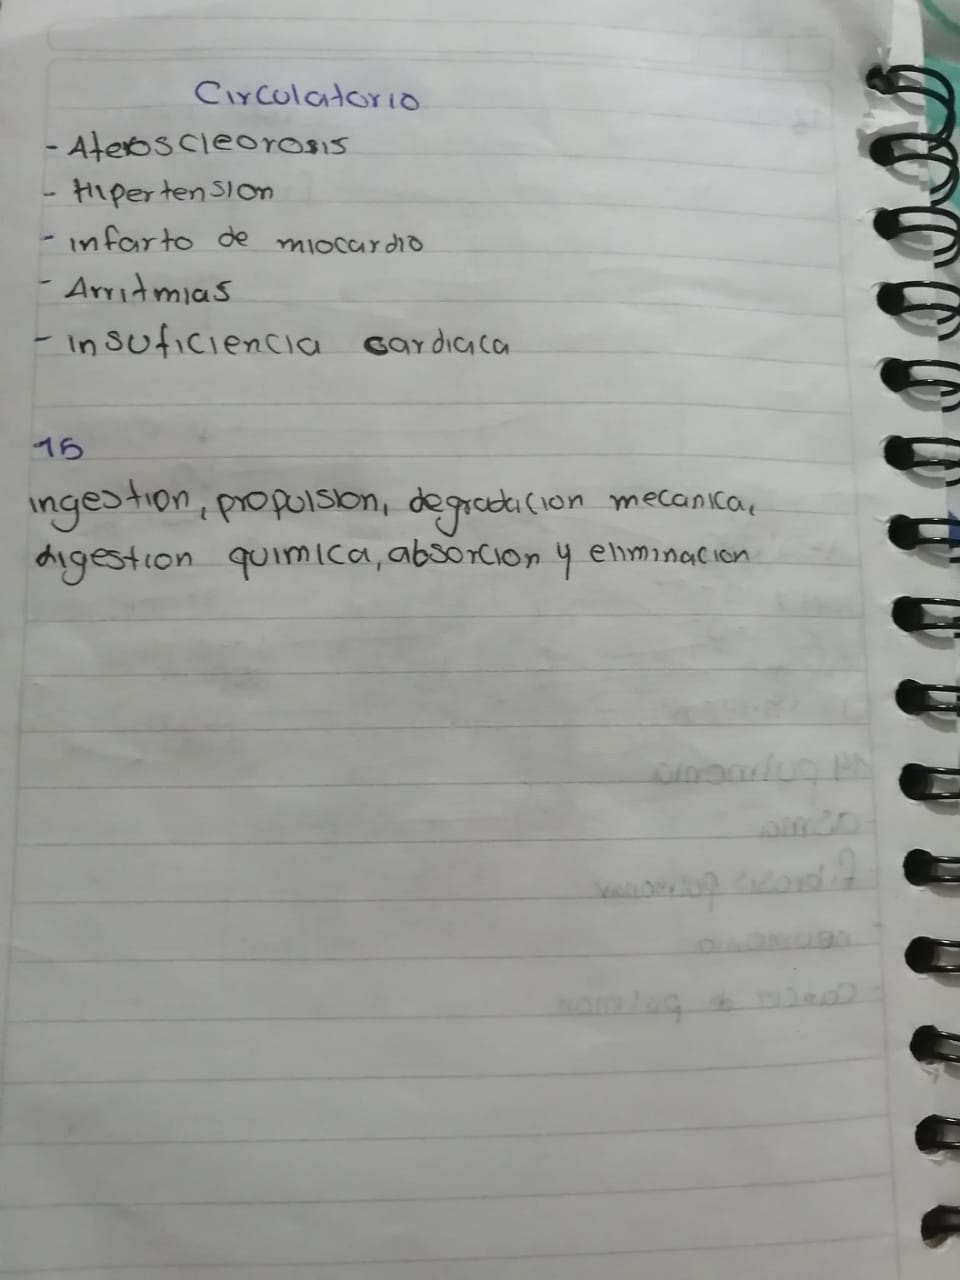 Circulatorio
- Ateroscleorosis
- Hipertension
- infarto de miocardio
- Arritmias
- insuficiencia cardiaca
15
ingestion, propulsion, degradacion mecanica,
digestion quimica, absorcion y eliminacion